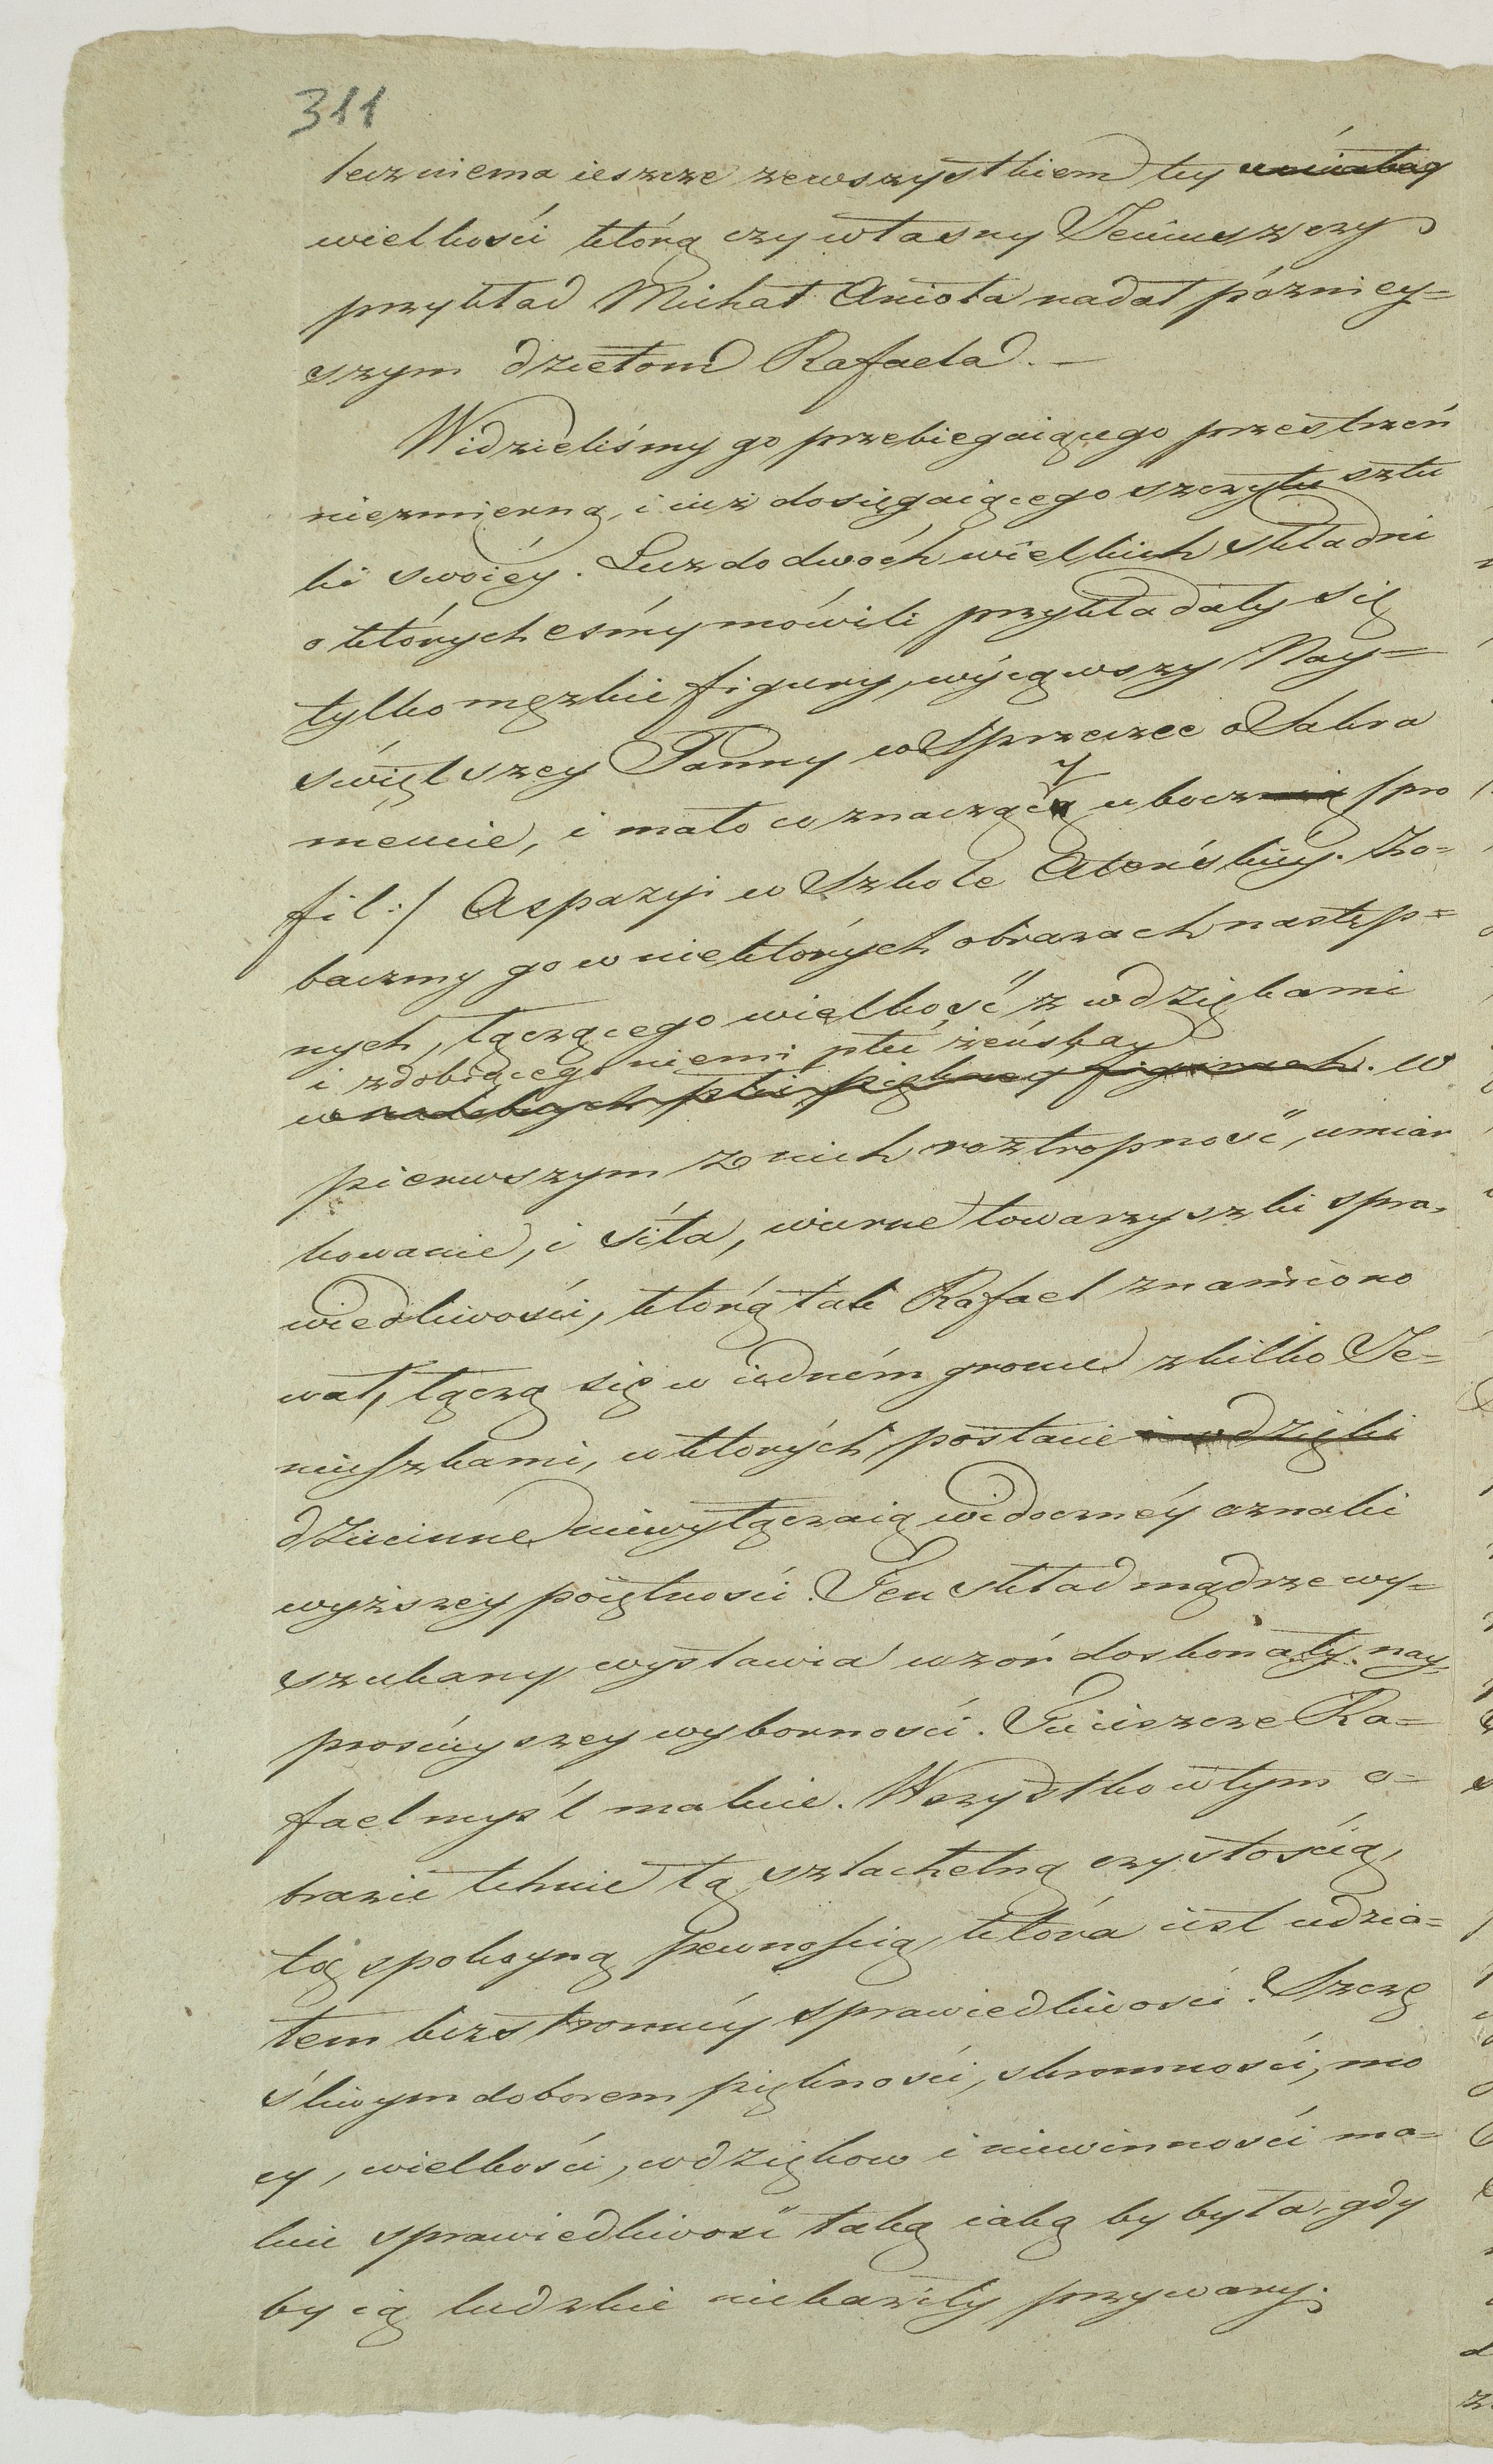 311
lecz niema ieszcze zewszystkiem tey
wielkości którą czy własny Jeniusz czy
przykład Michał Anioła nadał późniey=
szym dziełom Rafaela. —
Widzieliśmy go przebiegaiącego przestrzeń
niezmierną, i iuż dosięgaiącego szczytu sztu
ki swoiéy. Lecz do dwóch wielkich składni
o których eśmy mówili przykładały się
tylko męzkie figury, wyiąwszy Nay=
świętszey Panny w Sprzeczce o Sakra
mencie, i mało co znaczącey u boczn /pro
fil:/ Aspazyi w Szkole Ateńskiéy. Zo=
baczmy go w niektórych obrazach następ=
nych, łączącego wielkość z wdziękami
i zdobiącego niemi płeć żeńską
w szlachetnych płci piękney figurach. w
pierwszym z nich roztropność, umiar
kowanie, i siła, wierne towarzyszki spra,
wiedliwości, którą tak Rafael znamiono
wał, łączą się w iedném gronie z kilko Je=
niuszkami, w których postacie i wdzięki
dziecinne niewyłączaią widoczney oznaki
wyższey poiętności. Ten skład mądrze wy=
szukany wystawia wzór doskonały nay
prościeyszey wyborności. Tu ieszcze Ra=
fael myśl maluie. Wszystko w tym o=
brazie tchnie tą szlachetną czystością,
tą spokoyną pewnością, która iest udzia=
łem bezstronnéy sprawiedliwości. Szczę
śliwym doborem piękności, skromności, mo
cy, wielkości, wdzięków i niewinności ma=
luie sprawiedliwość taką iaką by była, gdy
by ią ludzkie niekaziły przywary.